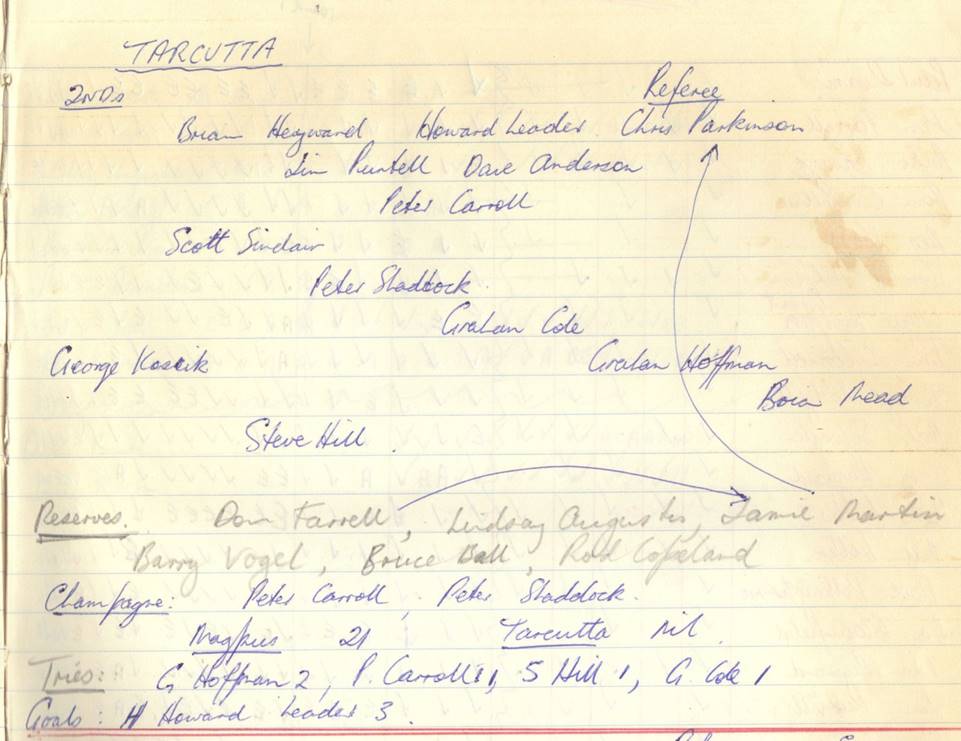 TARCUTTA
2NDs
Referee
Brian Heyward Howard Leader. Chris Parkinson
Jim Purtell Dave Anderson
Peter Carroll
Scott Sinclair
Peter Staddock.
Graham Cole
George Koscik Graham Hoffman
Brian Mead
Steve Hill.
Reserves. Dom Farrell, Lindsay Augustin, Jamie Martin
Barry Vogel, Bruce Ball, Rod Copeland
Champagne: Peter Carroll, Peter Staddock.
Magpies 21 Tarcutta Nil.
Tries: G Hoffman 2, P. Carroll 1, S Hill 1, G. Cole 1
Goals: H Howard Leader 3.